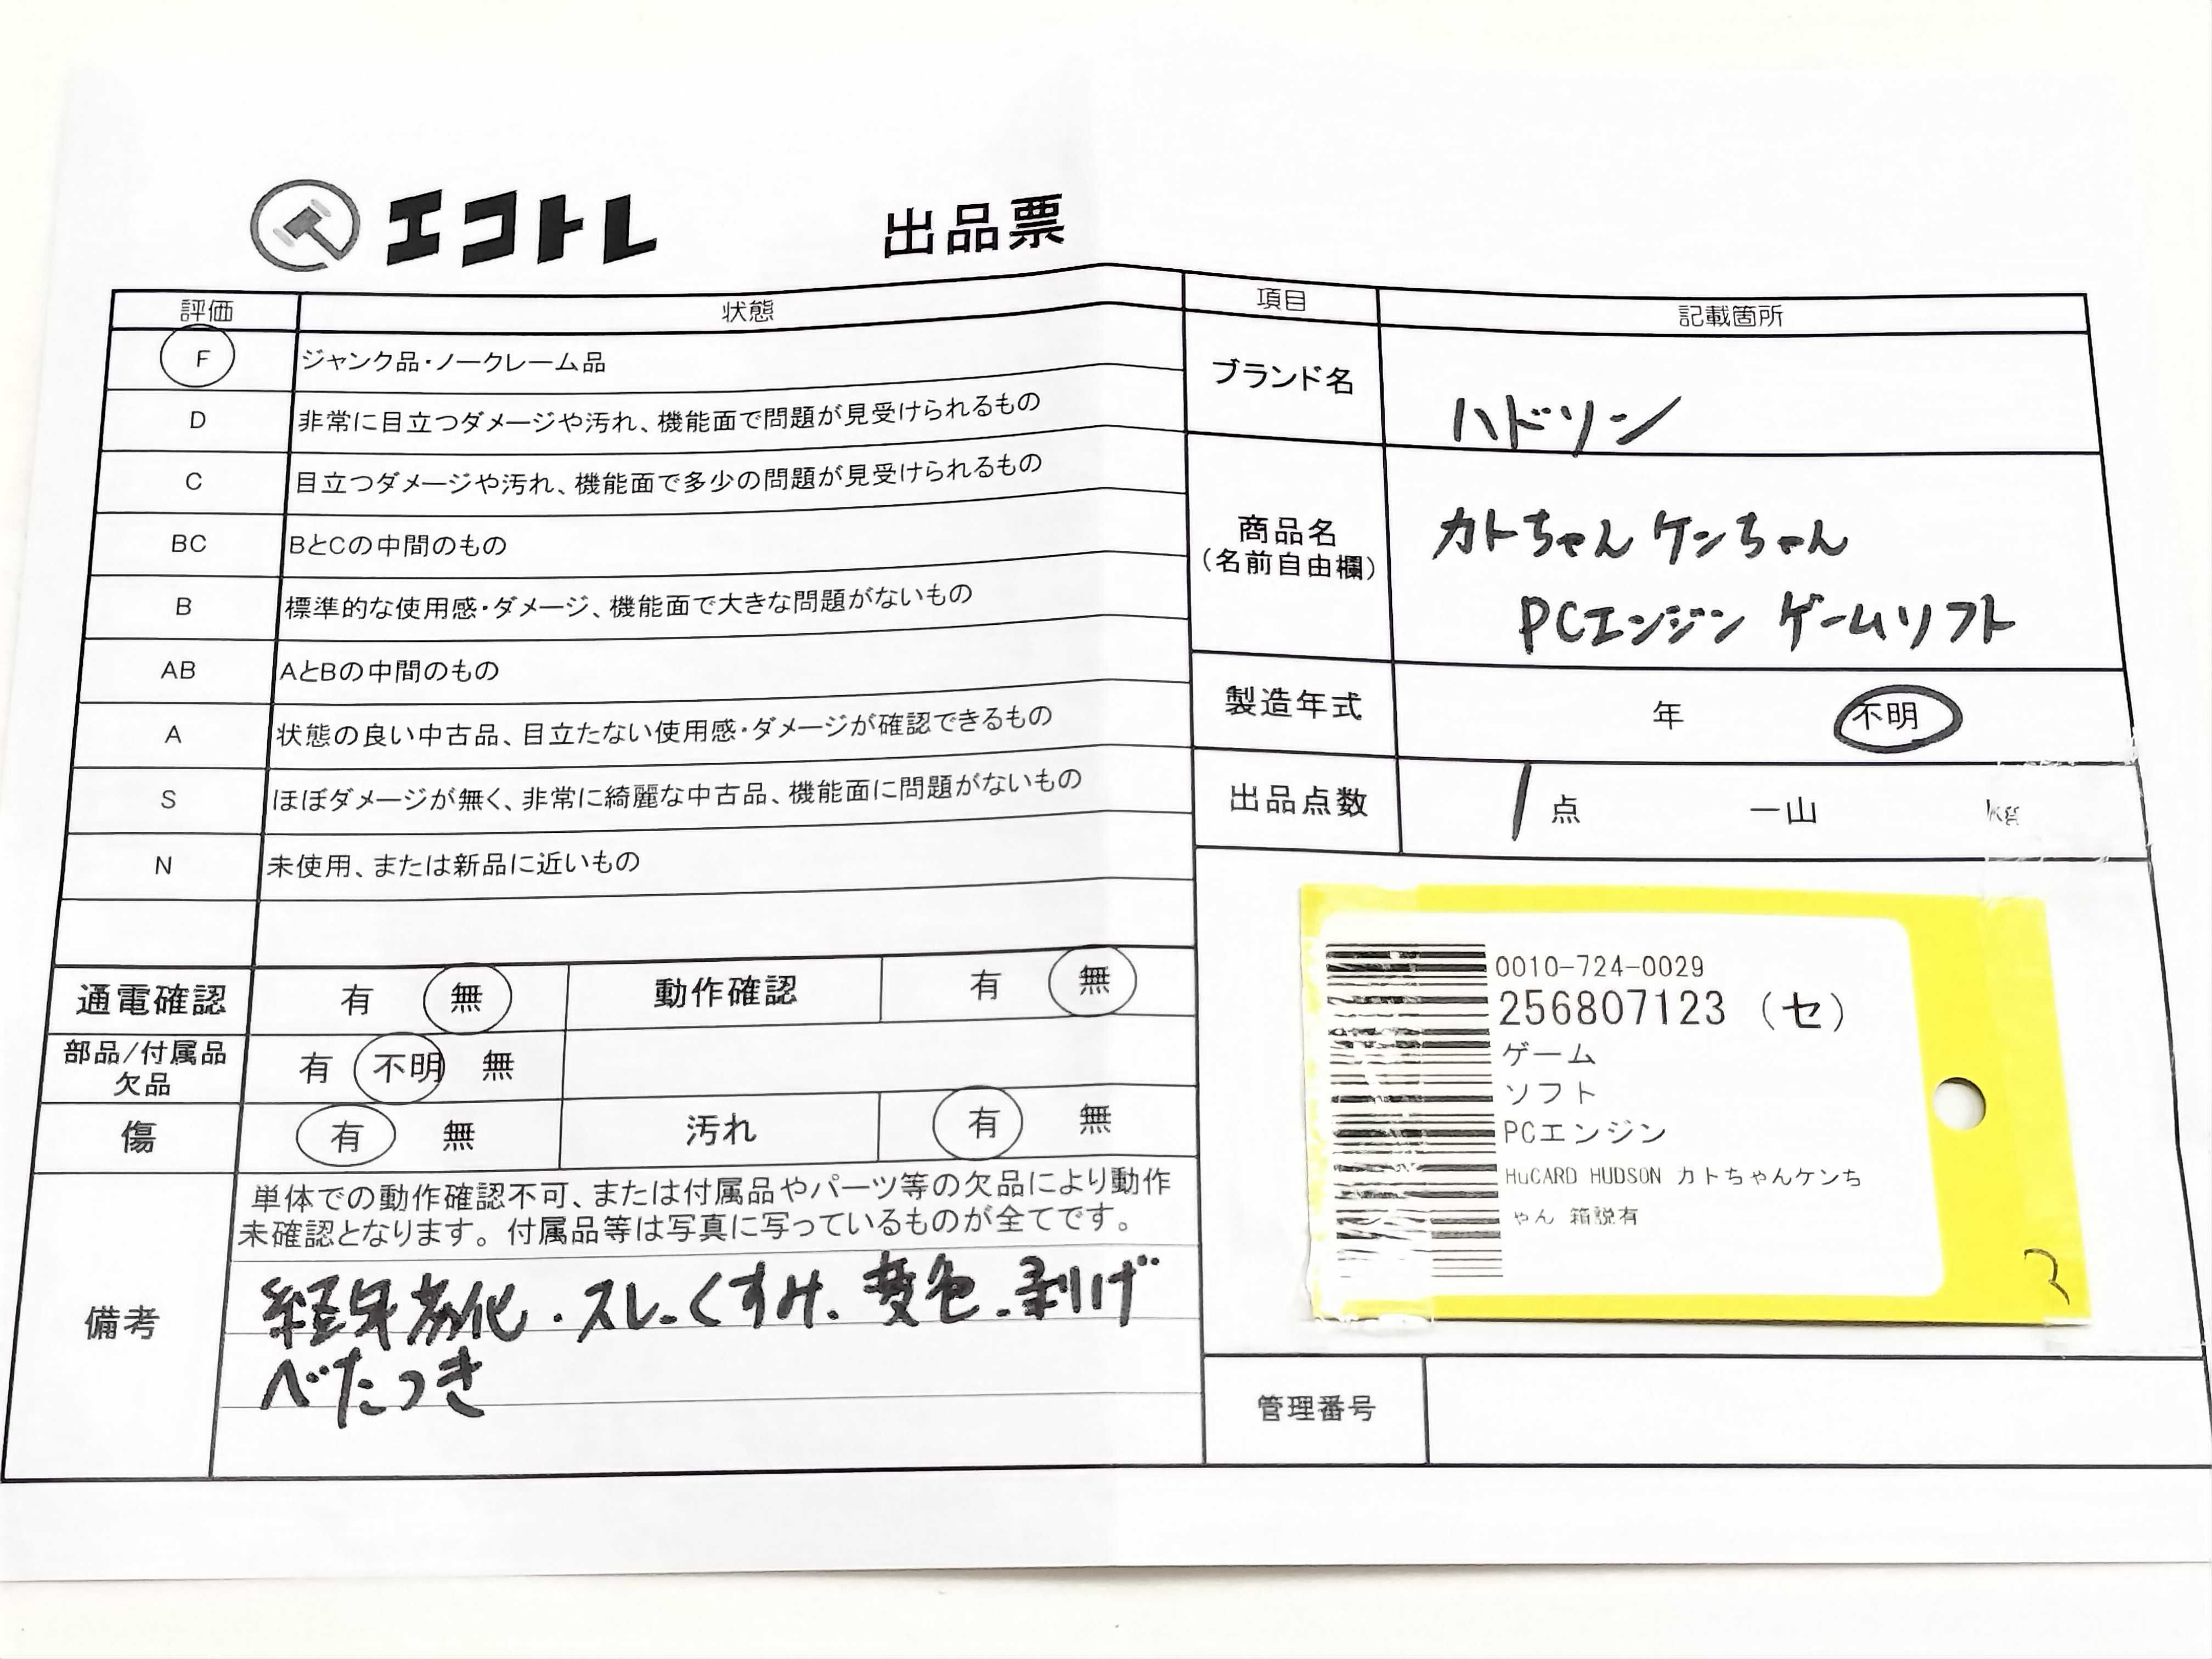 エコトレ 出品票
評価 状態
F ジャンク品・ノークレーム品
D 非常に目立つダメージや汚れ、機能面で問題が見受けられるもの
C 目立つダメージや汚れ、機能面で多少の問題が見受けられるもの
BC BとCの中間のもの
B 標準的な使用感・ダメージ、機能面で大きな問題がないもの
AB AとBの中間のもの
A 状態の良い中古品、目立たない使用感・ダメージが確認できるもの
S ほぼダメージが無く、非常に綺麗な中古品、機能面に問題がないもの
N 未使用、または新品に近いもの
通電確認 有 無 動作確認 有 無
部品/付属品
欠品
有 不明 無
傷 有 無 汚れ 有 無
備考
単体での動作確認不可、または付属品やパーツ等の欠品により動作
未確認となります。付属品等は写真に写っているものが全てです。
経年劣化・スレ、くすみ、変色、剥げ
べたつき
項目 記載箇所
ブランド名 ハドソン
商品名
(名前自由欄)
カトちゃんケンちゃん
PCエンジン ゲームソフト
製造年式 年 不明
出品点数 1 点 一山 kg
0010-724-0029
256807123 (セ)
ゲーム
ソフト
PCエンジン
HuCARD HUDSON カトちゃんケンち
ゃん 箱説有
3
管理番号